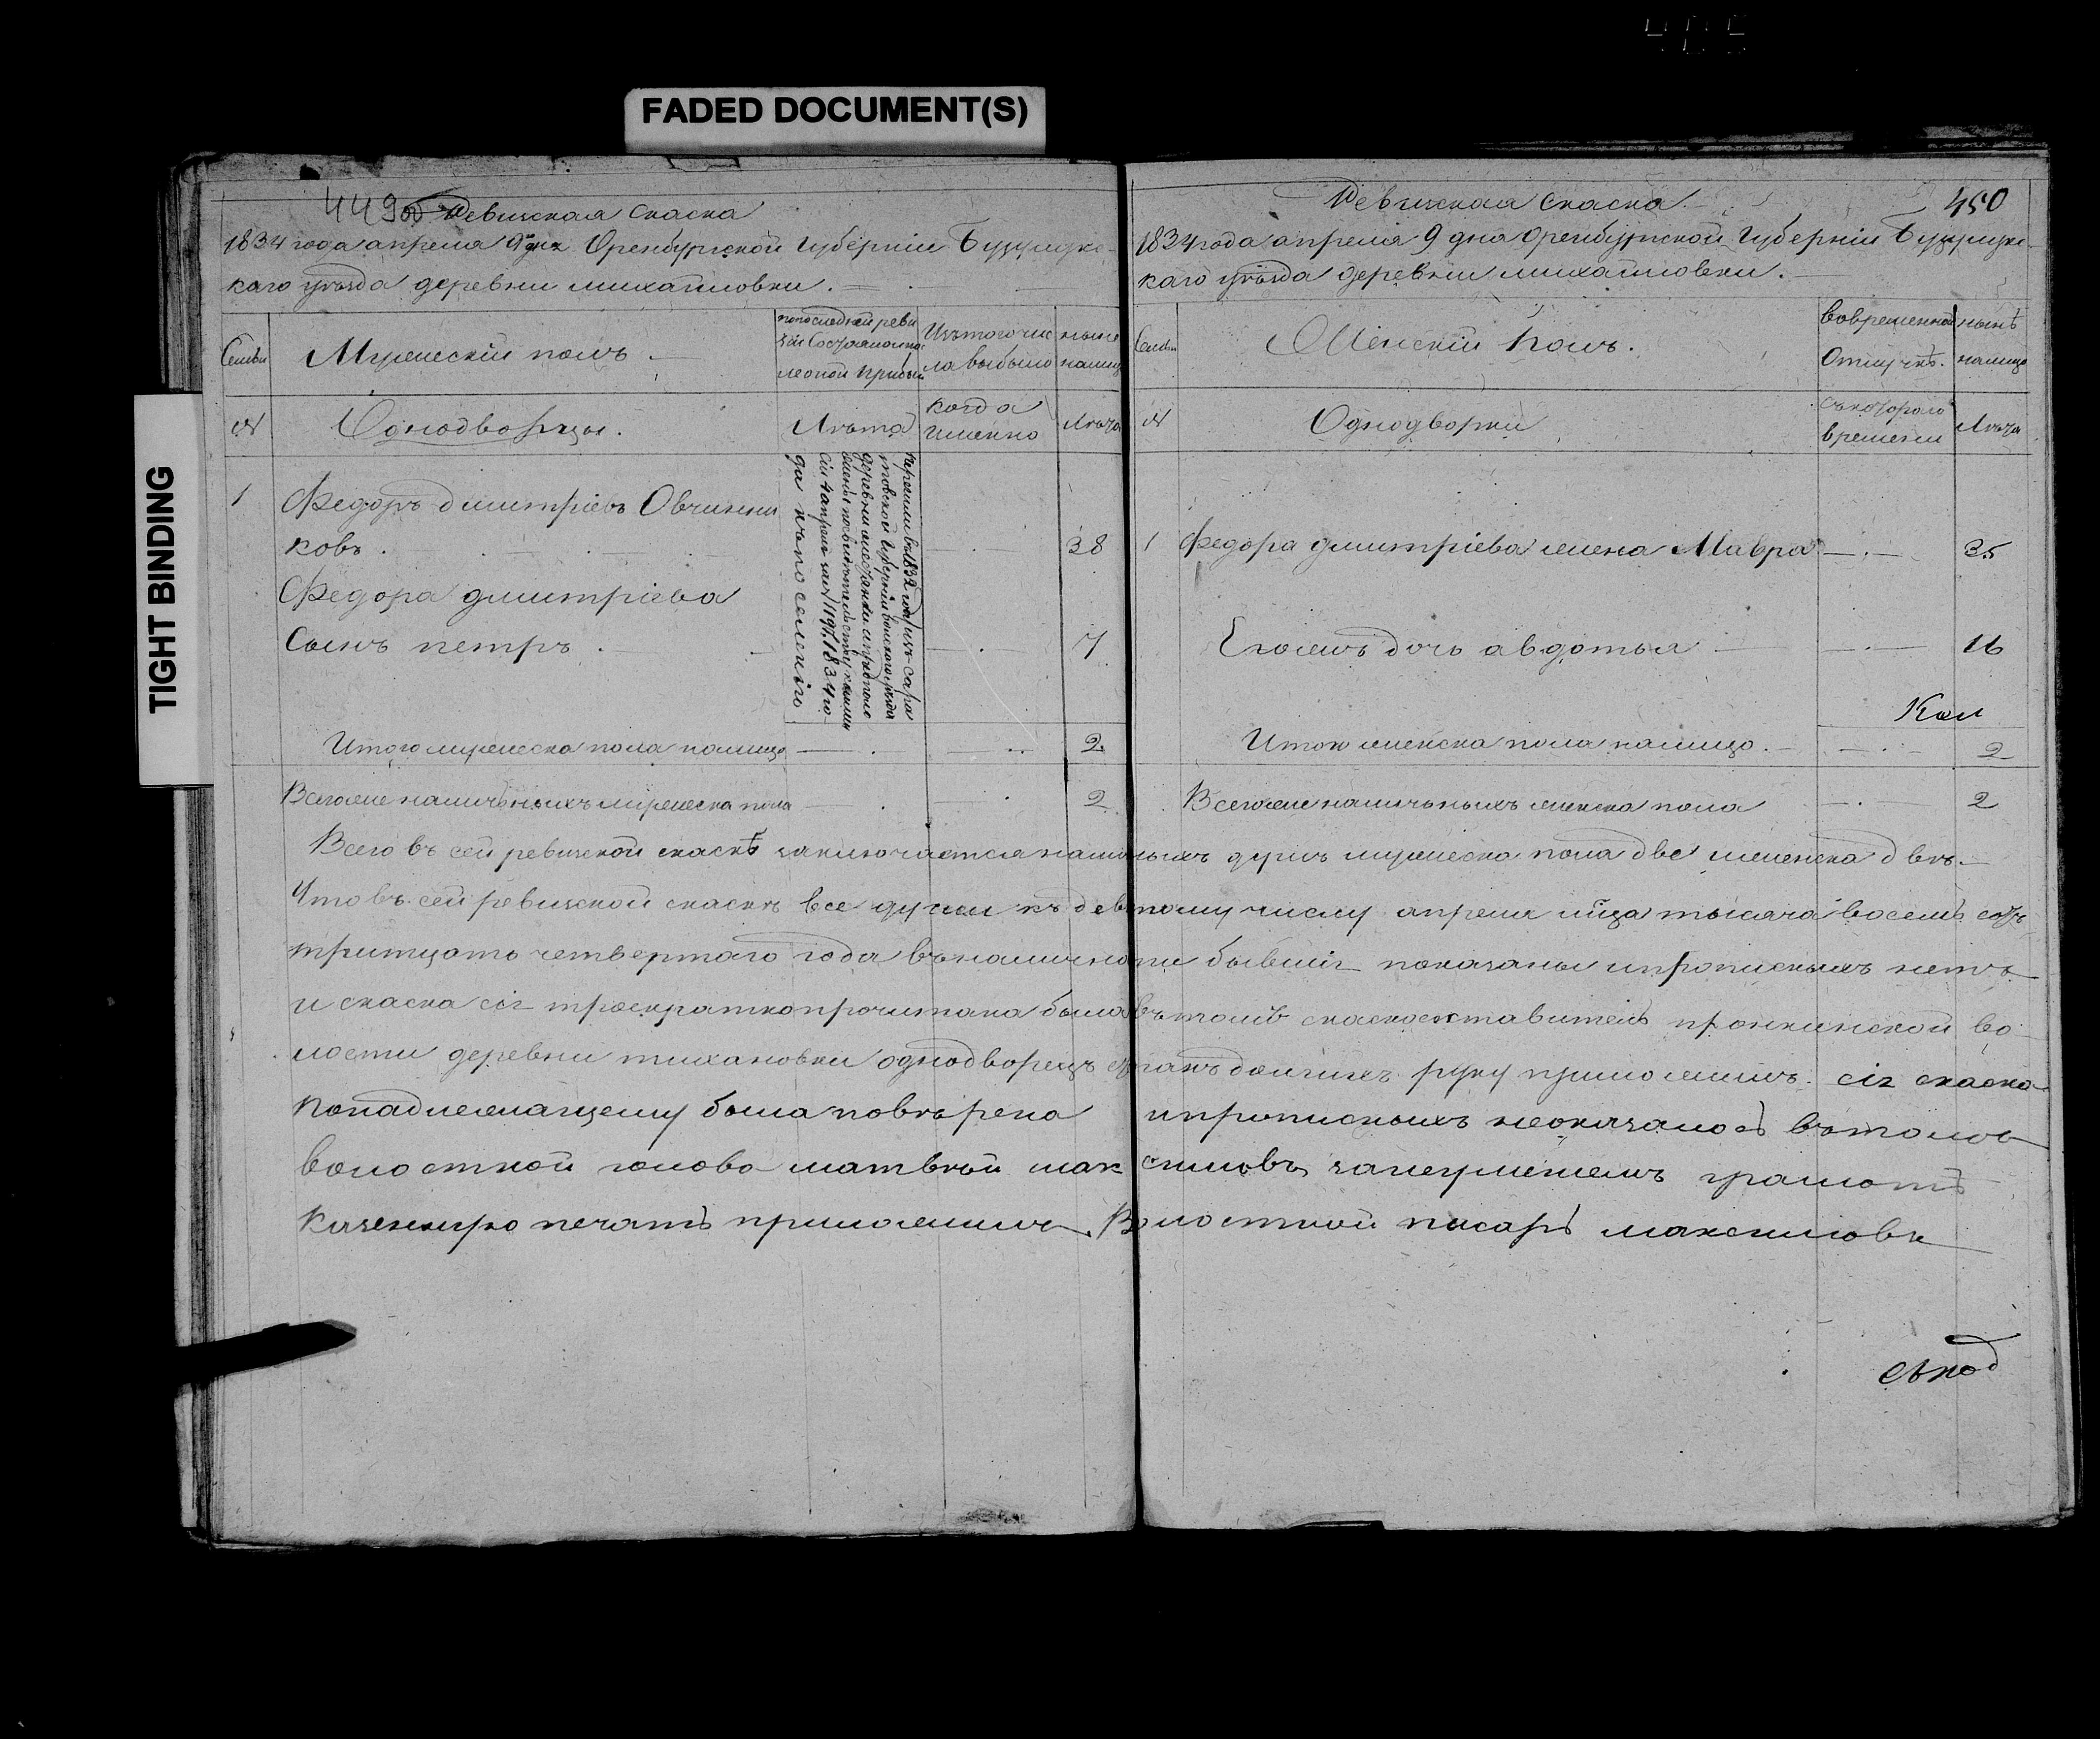 FADED DOCUMENT(S)
TIGHT BINDING
449 об Ревизская скаска
1834 года апреля 9 дня Оренбургской губерніи Бузулукс
каго уѣзда деревни михаиловки.
Семьи
Мужескій полъ.
по последней реви
зіи состояло и по
нынѣ
налицо
Изъ того чис
ла выбыло
№
Однодворцы.
Лѣта
когда
именно
Лѣта
1
Федоръ дмитріевъ Овчинни
ковъ.
38
Федора дмитріева
сынъ петръ.
7
перешли въ 1832 году изъ сара
товской губерніи
деревни
1834 го
да къ поселенію
Итого мужеска пола налицо
2
Всего же наличныхъ мужеска пола
2
Ревизская скаска
450
1834 года апреля 9 дня Оренбургской губерніи Бузулукс
каго уѣзда деревни михаиловки.
Семьи
Женскій полъ.
во временной
Отлучкѣ.
нынѣ
налицо
№
Однодворки
съ котораго
времени
Лѣта
1
Федора дмитріева жена Мавра
35
Его жъ дочь авдотья
16
Итого женска пола налицо.
2
Всего же наличныхъ женска пола
2
Всего въ сей ревизской скаскѣ заключается наличныхъ душъ мужеска пола две женска двѣ.
Что въ сей ревизской скаскѣ все души къ девятому числу апреля мца тысяча восемь сотъ
тритцать четвертаго года въ наличности бывшія показаны и прописныхъ нетъ
и скаска сія троекратно прочитана была въ томъ скаскосоставитель пронкинской во
лости деревни михаиловки однодворецъ руку приложилъ. сія скаска
по надлежащему была поверена и прописныхъ неоказалось въ томъ
волостной голова матвѣй максимовъ за неумениемъ грамотѣ
казенную печать приложилъ. Волостной писарь максимовъ